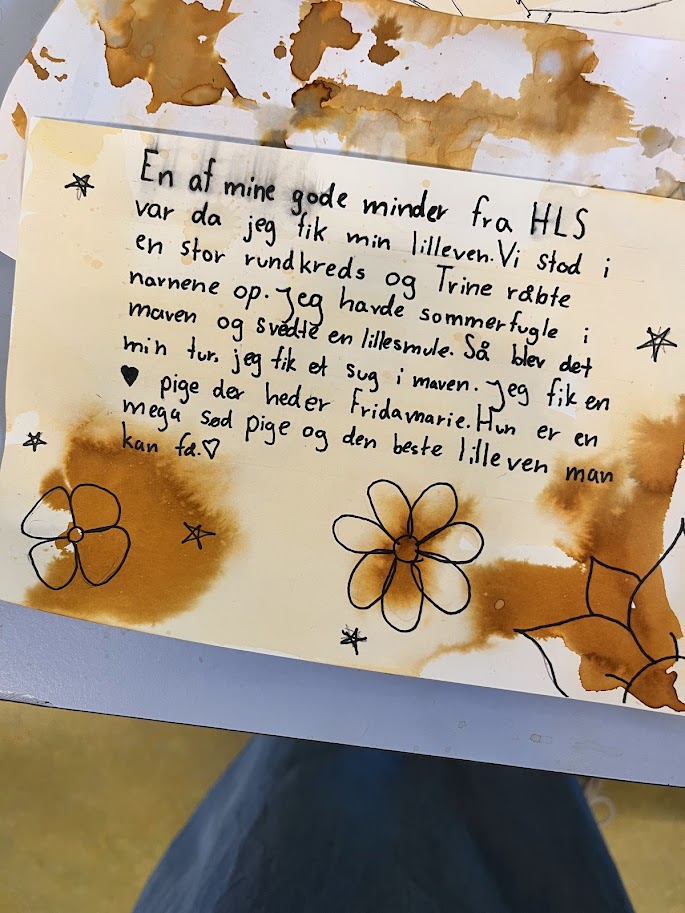 En af mine gode minder fra HLS
var da jeg fik min lilleven. Vi stod i
en stor rundkreds og Trine råbte
navnene op. Jeg havde sommerfugle i
maven og svedte en lillesmule. Så blev det
min tur, jeg fik et sug i maven. Jeg fik en
♥ pige der heder Fridamarie. Hun er en
mega sød pige og den beste lilleven man
kan få.♡